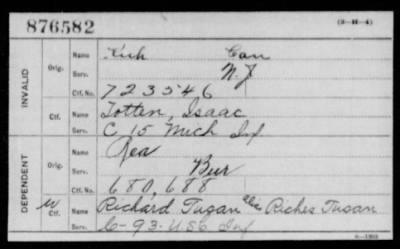 876582
(3-H-4)
INVALID
Orig.
Name Kich Can
Serv. N.J
Ctf. No. 723546
Ctf.
Name Totten, Isaac
Serv. C 15 Mich Inf
DEPENDENT
Orig.
Name Rea
Serv. Bur
Ctf. No. 680,688
W Ctf.
Name Richard Tugan alias Riches Tusan
Serv. 6-93-US6 Inf